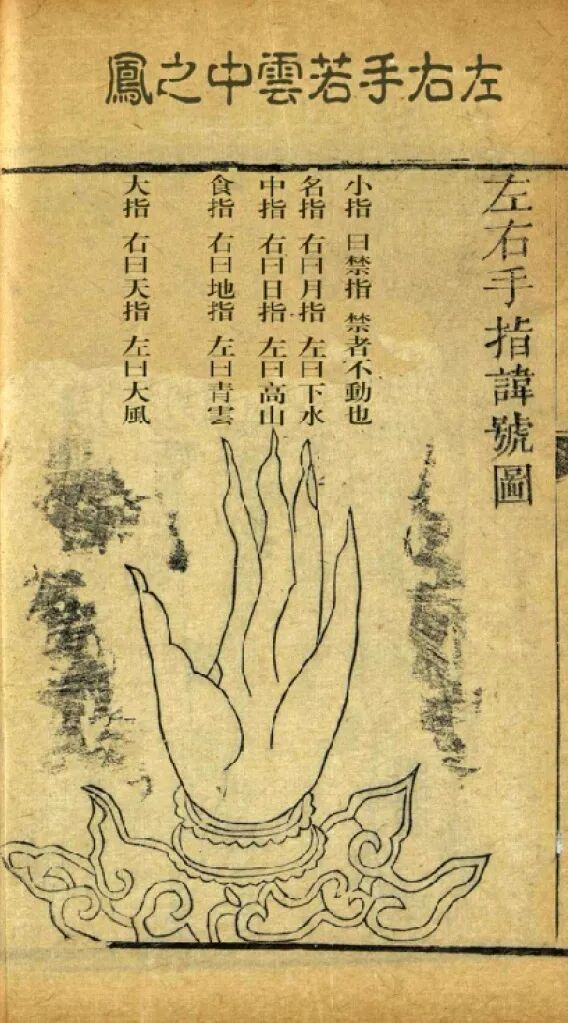 左右手若雲中之鳳
左右手指諱號圖
小指 曰禁指 禁者不動也
名指 右曰月指 左曰下水
中指 右曰日指 左曰高山
食指 右曰地指 左曰青雲
大指 右曰天指 左曰大風